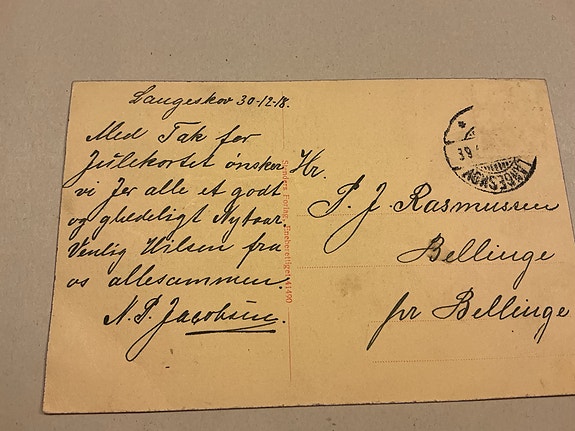 Langeskov 30-12-18.
Med Tak for
Julekortet ønsker
vi Jer alle et godt
og glædeligt Nytaar.
Venlig Hilsen fra
os allesammen.
N. P. Jacobsen.
Sanders Forlag. Eneberettiget 41490
Hr.
P. J. Rasmussen
Bellinge
pr Bellinge
LANGESKOV